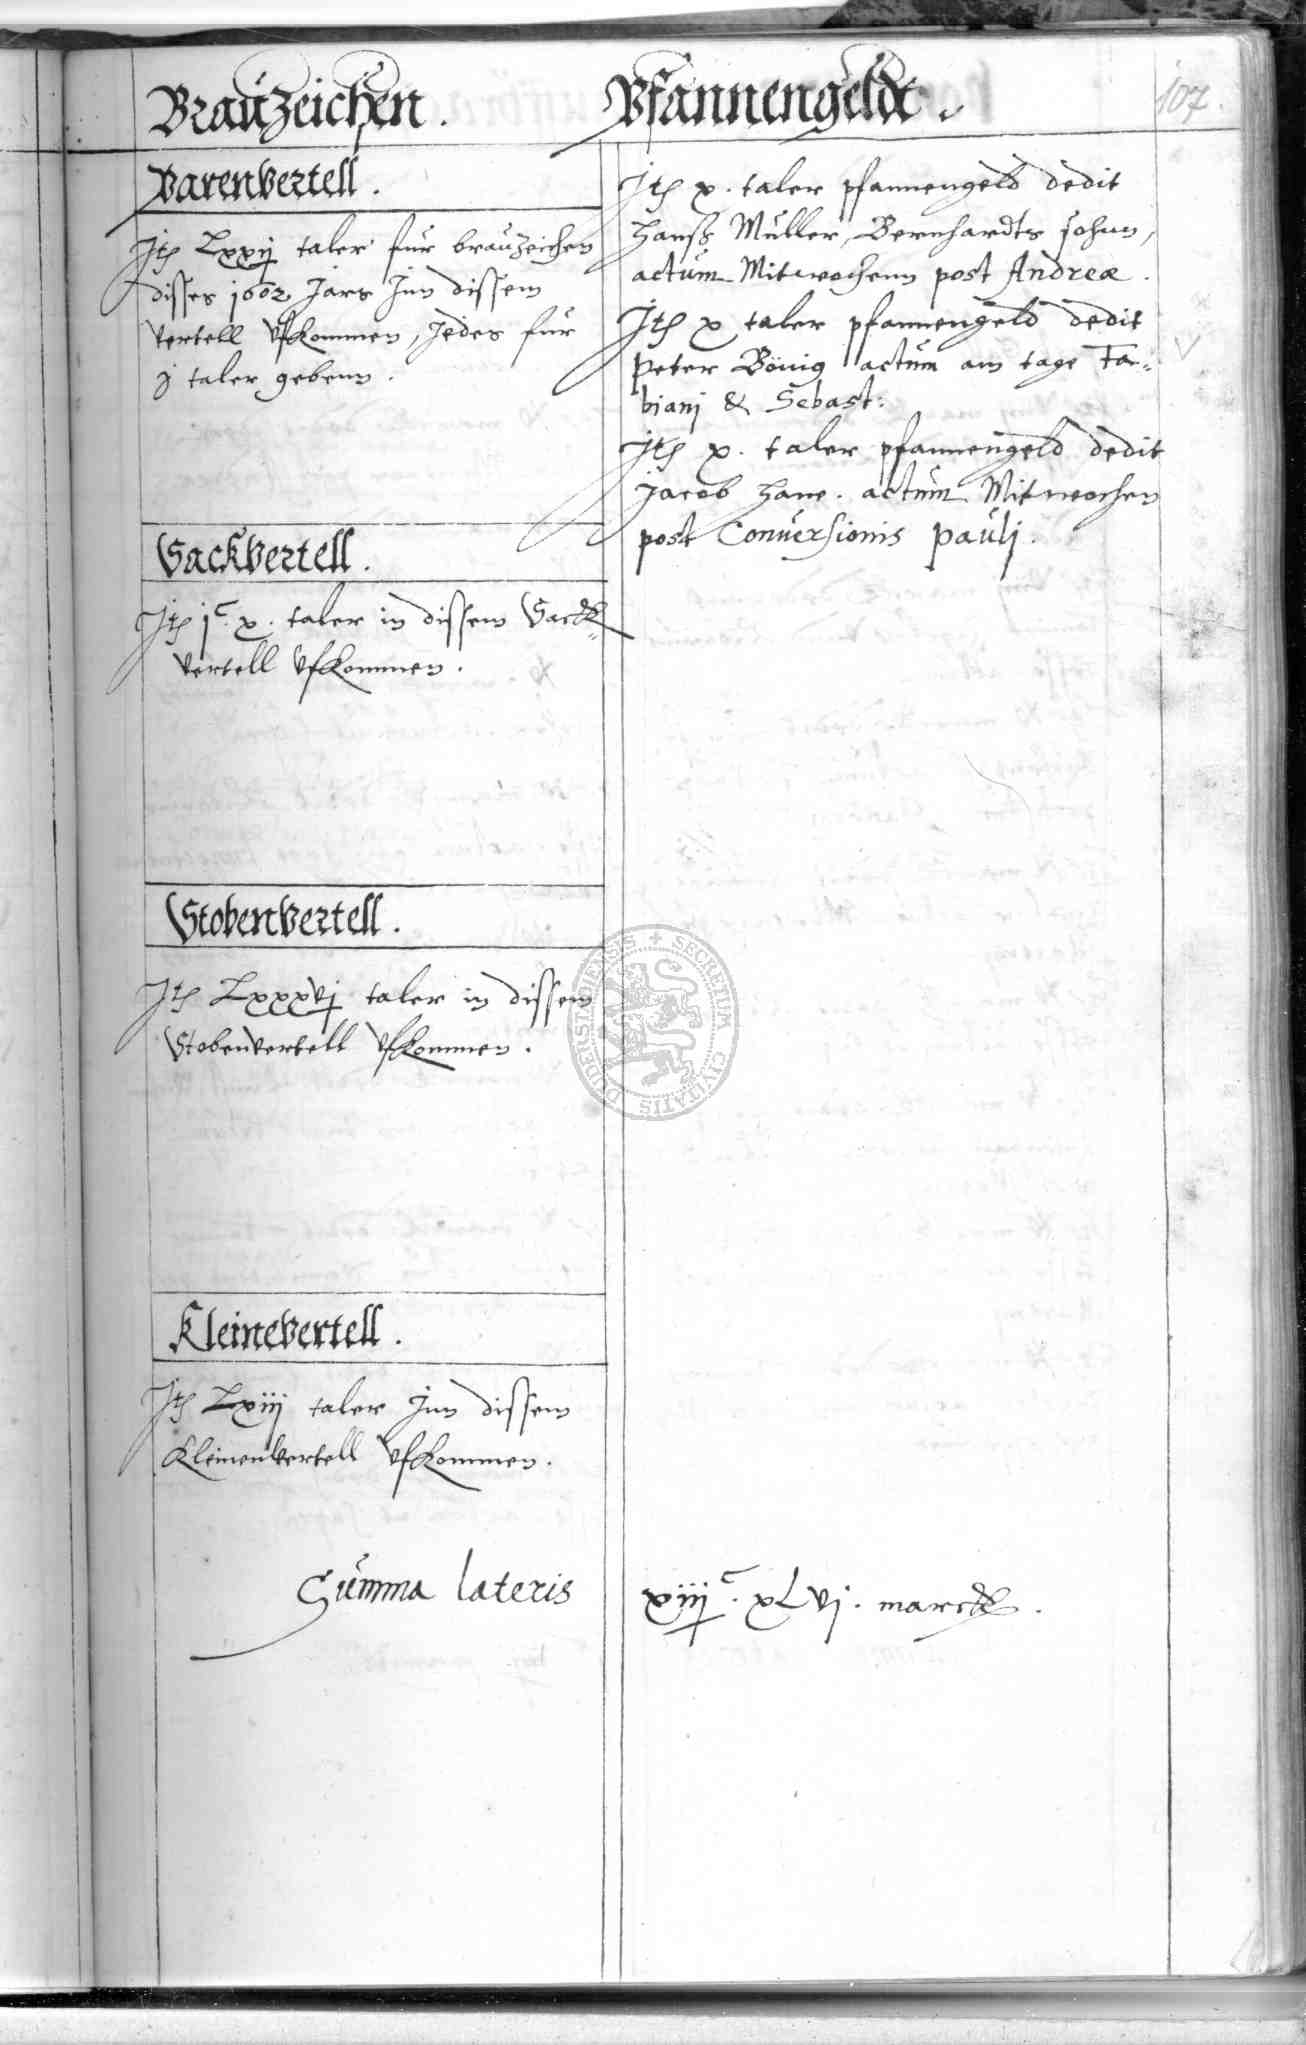 Brauzeichen. Pfannengeldt.
107.
Barenvertell.
Ith Lxxij taler fur brauzeichen
disses 1602 Jars Jnn dissem
vertell vfkommen, Jedes fur
j taler gebenn.
Sackvertell.
Ith jc. x. taler in dissem Sack=
vertell vfkommen.
Stobenvertell.
Ith Lxxxvj taler in dissem
Stobenvertell vfkommen.
Kleinevertell.
Ith Lxiij taler Jnn dissem
Kleinenvertell vfkommen.
Ith x. taler pfannengeld dedit
Hanß Müller Bernhardts sohnn,
actum Mitwochenn post Andreæ.
Ith x taler pfannengeld dedit
Peter Bönig actum am tage Fa=
biani & Sebast:
Ith x. taler pfannengeld dedit
Jacob Hane. actum Mitwochen
post Conversionis Pauli.
Summa lateris xiiijc. xLvj. marck.
SECRETUM CIVITATIS DUDERSTADENSIS